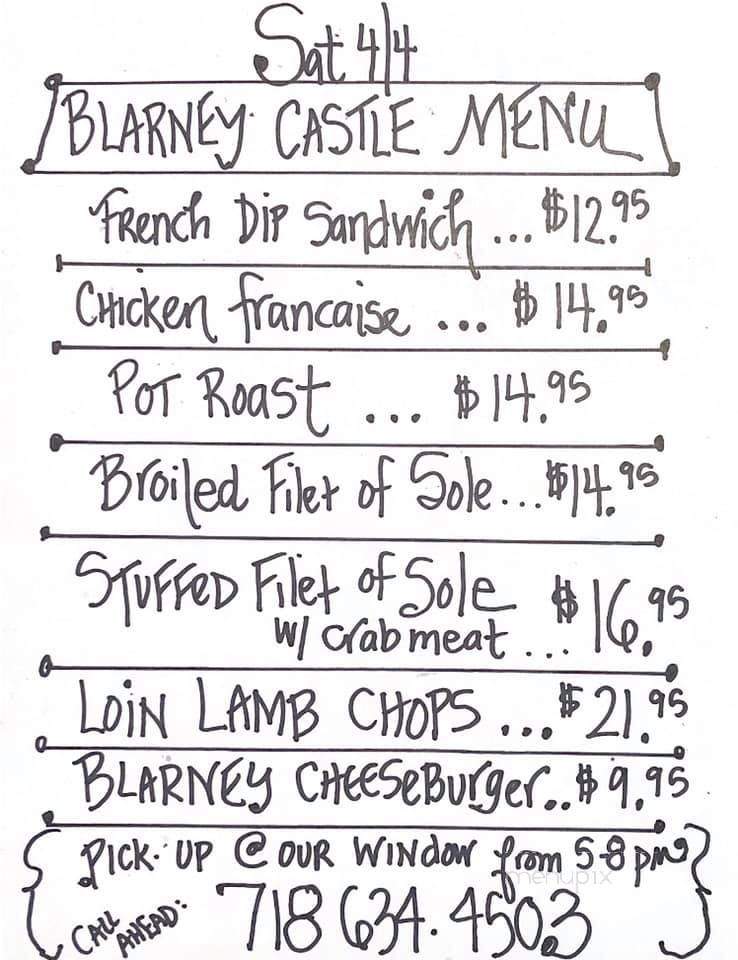 Sat 4/4
BLARNEY CASTLE MENU
French Dip Sandwich ... $12.95
Chicken francaise ... $14.95
Pot Roast ... $14.95
Broiled Filet of Sole... $14.95
Stuffed Filet of Sole
w/ crabmeat ... $16.95
Loin LAMB CHOPS ... $21.95
BLARNEY CHEESeBurger.. $9.95
PICK-UP @ OUR WINDOW from 5-8 pm
menupix
CALL AHEAD: 718 634.4503